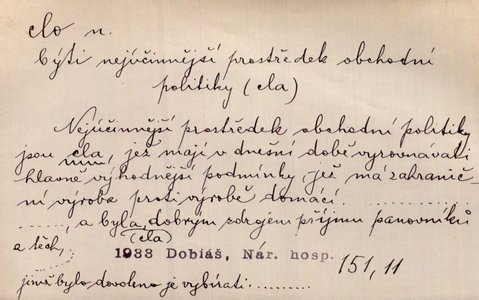 clo n.
býti nejúčinnější prostředek obchodní
politiky (cla)
Nejúčinnější prostředek obchodní politiky
jsou cla, jež mají v dnešní době vyrovnávati
hlavně výhodnější podmínky, jež má zahranič-
ní výroba proti výrobě domácí. ............
........, a byla dobrým zdrojem příjmu panovníků
(cla)
a těch,
1933 Dobiáš, Nár. hosp. 151,11
jimž bylo dovoleno je vybírati .........